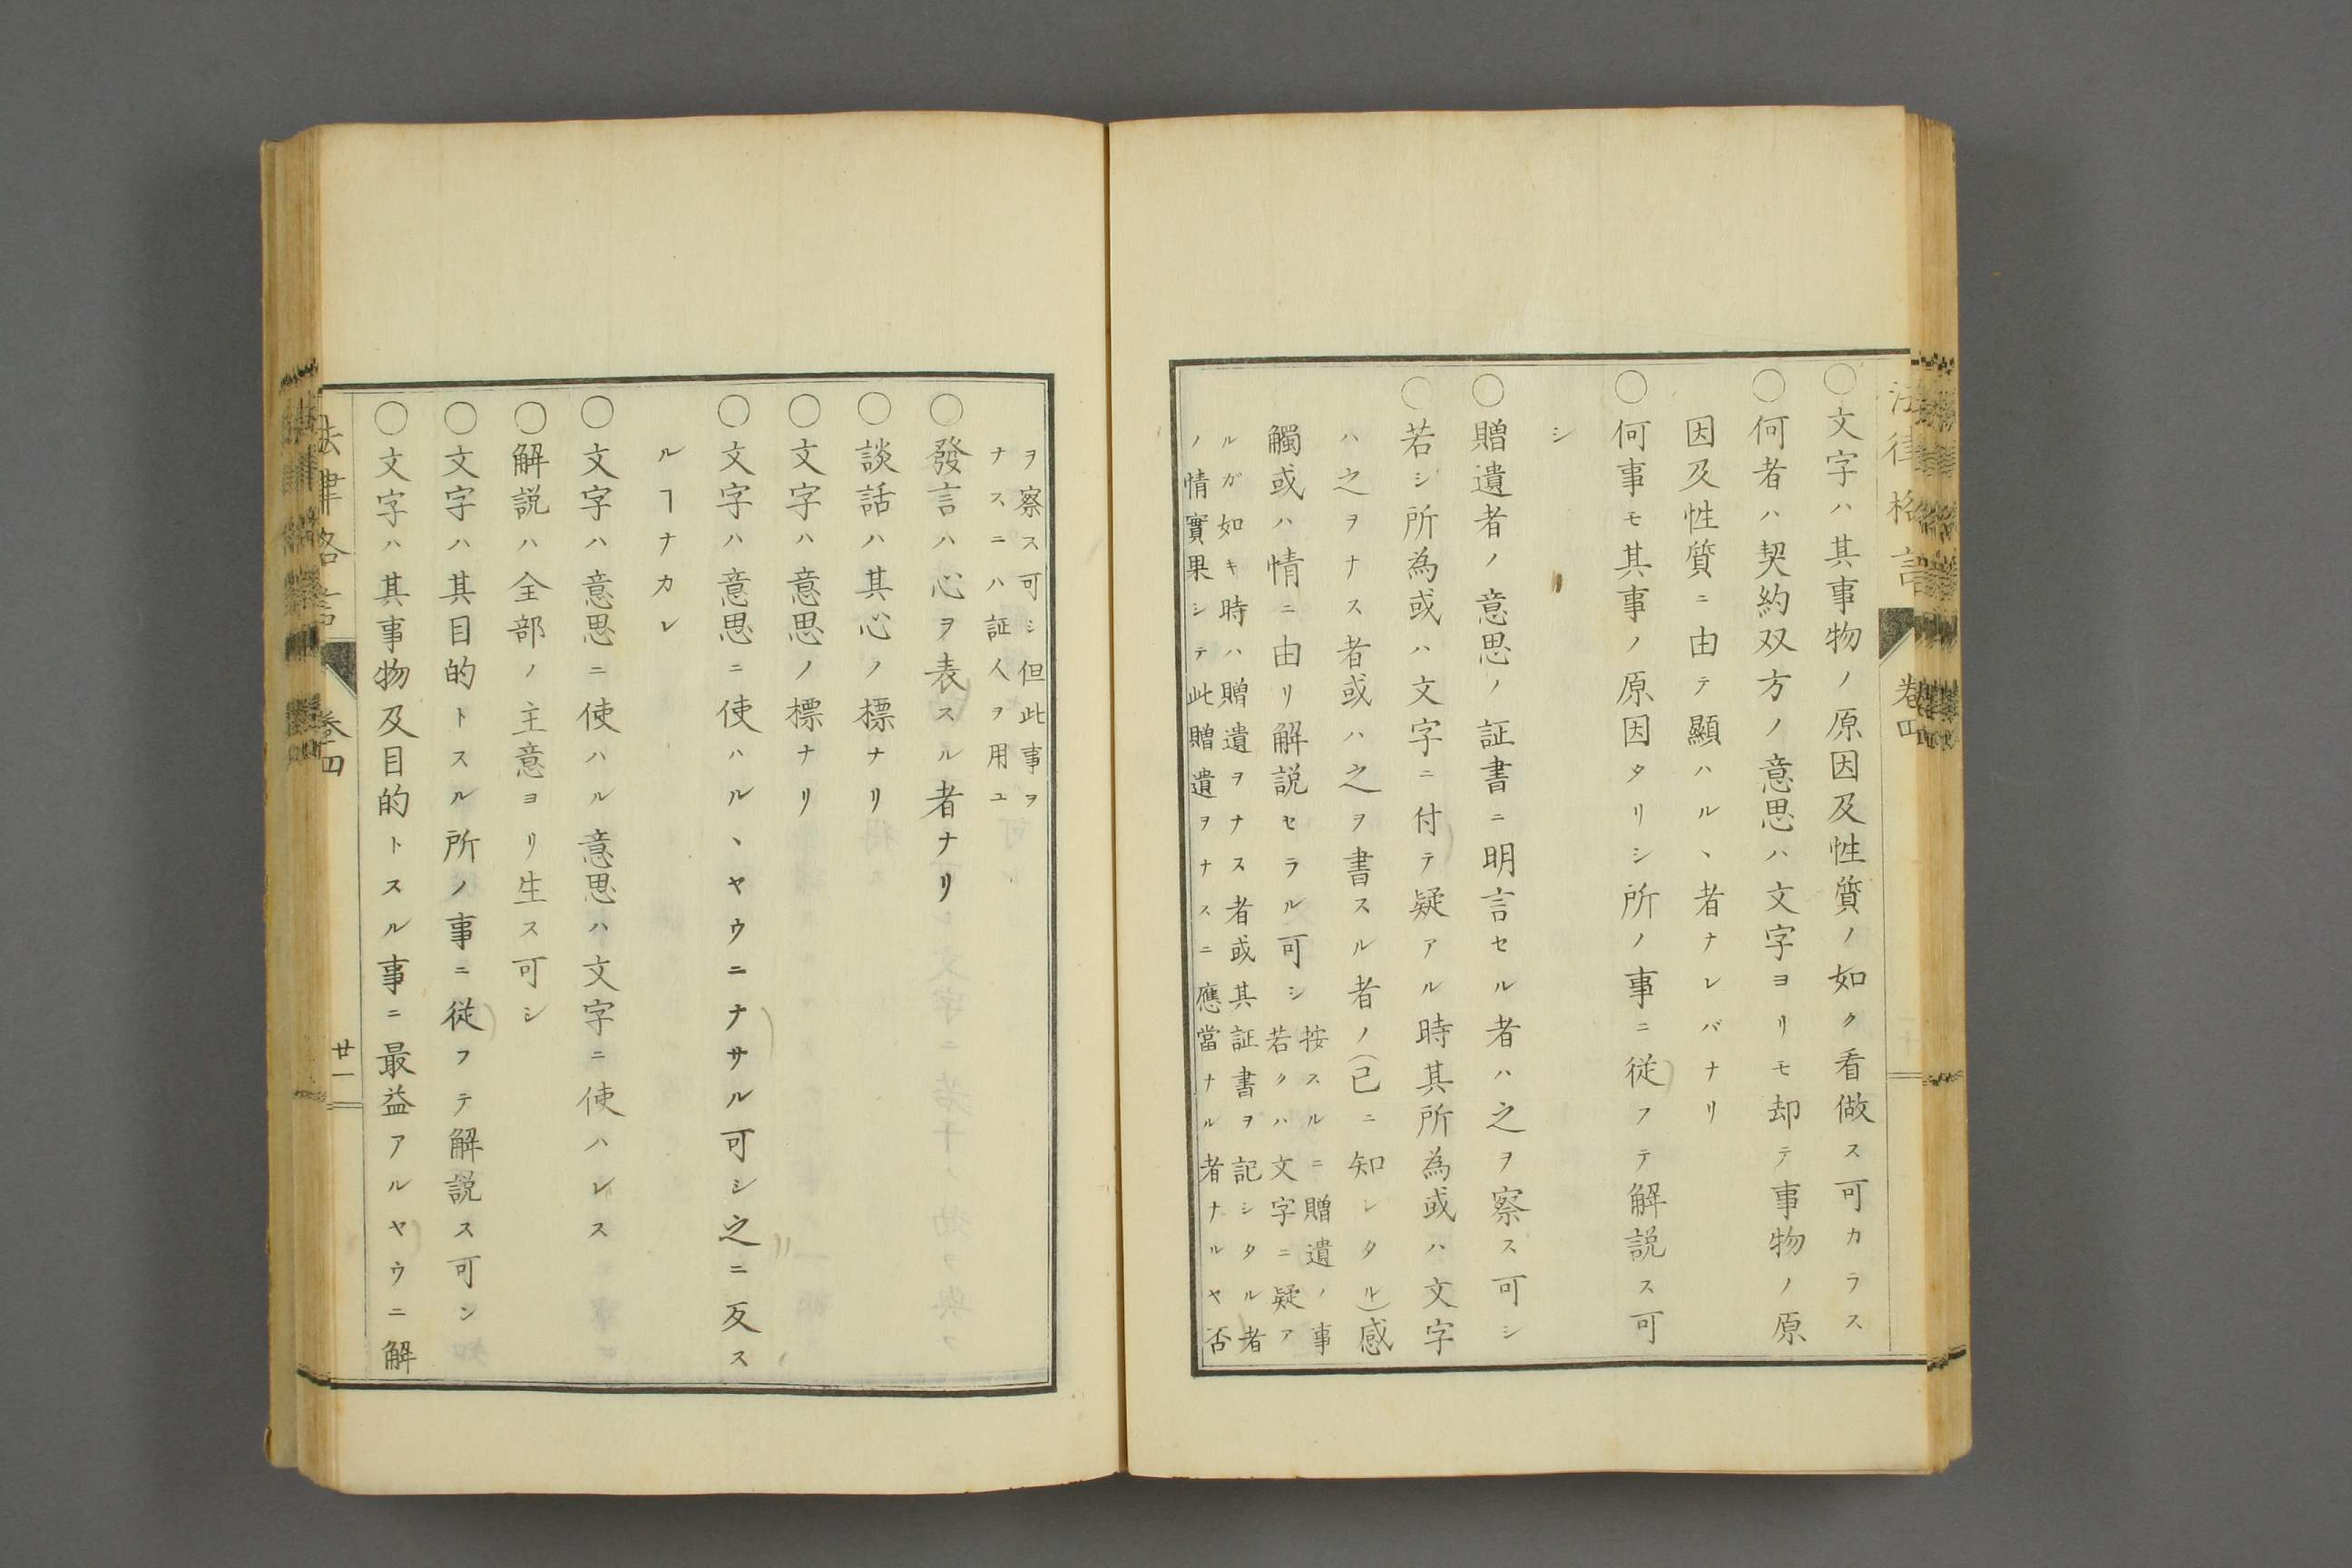 法律格言
卷四
○文字ハ其事物ノ原因及性質ノ如ク看做ス可カラス
○何者ハ契約双方ノ意思ハ文字ヨリモ却テ事物ノ原
因及性質ニ由テ顯ハルヽ者ナレバナリ
○何事モ其事ノ原因タリシ所ノ事ニ従フテ解説ス可
シ
○贈遺者ノ意思ノ証書ニ明言セル者ハ之ヲ察ス可シ
○若シ所為或ハ文字ニ付テ疑アル時其所為或ハ文字
ハ之ヲナス者或ハ之ヲ書スル者ノ(已ニ知レタル)感
觸或ハ情ニ由リ解説セラル可シ
按スルニ贈遺ノ事
若クハ文字ニ疑ア
ルガ如キ時ハ贈遺ヲナス者或其証書ヲ記シタル者
ノ情實果シテ此贈遺ヲナスニ應當ナル者ナルヤ否
ヲ察ス可シ但此事ヲ
ナスニハ証人ヲ用ユ
○發言ハ心ヲ表スル者ナリ
○談話ハ其心ノ標ナリ
○文字ハ意思ノ標ナリ
○文字ハ意思ニ使ハルヽヤウニナサル可シ之ニ反ス
ルヿナカレ
○文字ハ意思ニ使ハル意思ハ文字ニ使ハレス
○解説ハ全部ノ主意ヨリ生ス可シ
○文字ハ其目的トスル所ノ事ニ従フテ解説ス可シ
○文字ハ其事物及目的トスル事ニ最益アルヤウニ解
法律格言
卷四
廿一